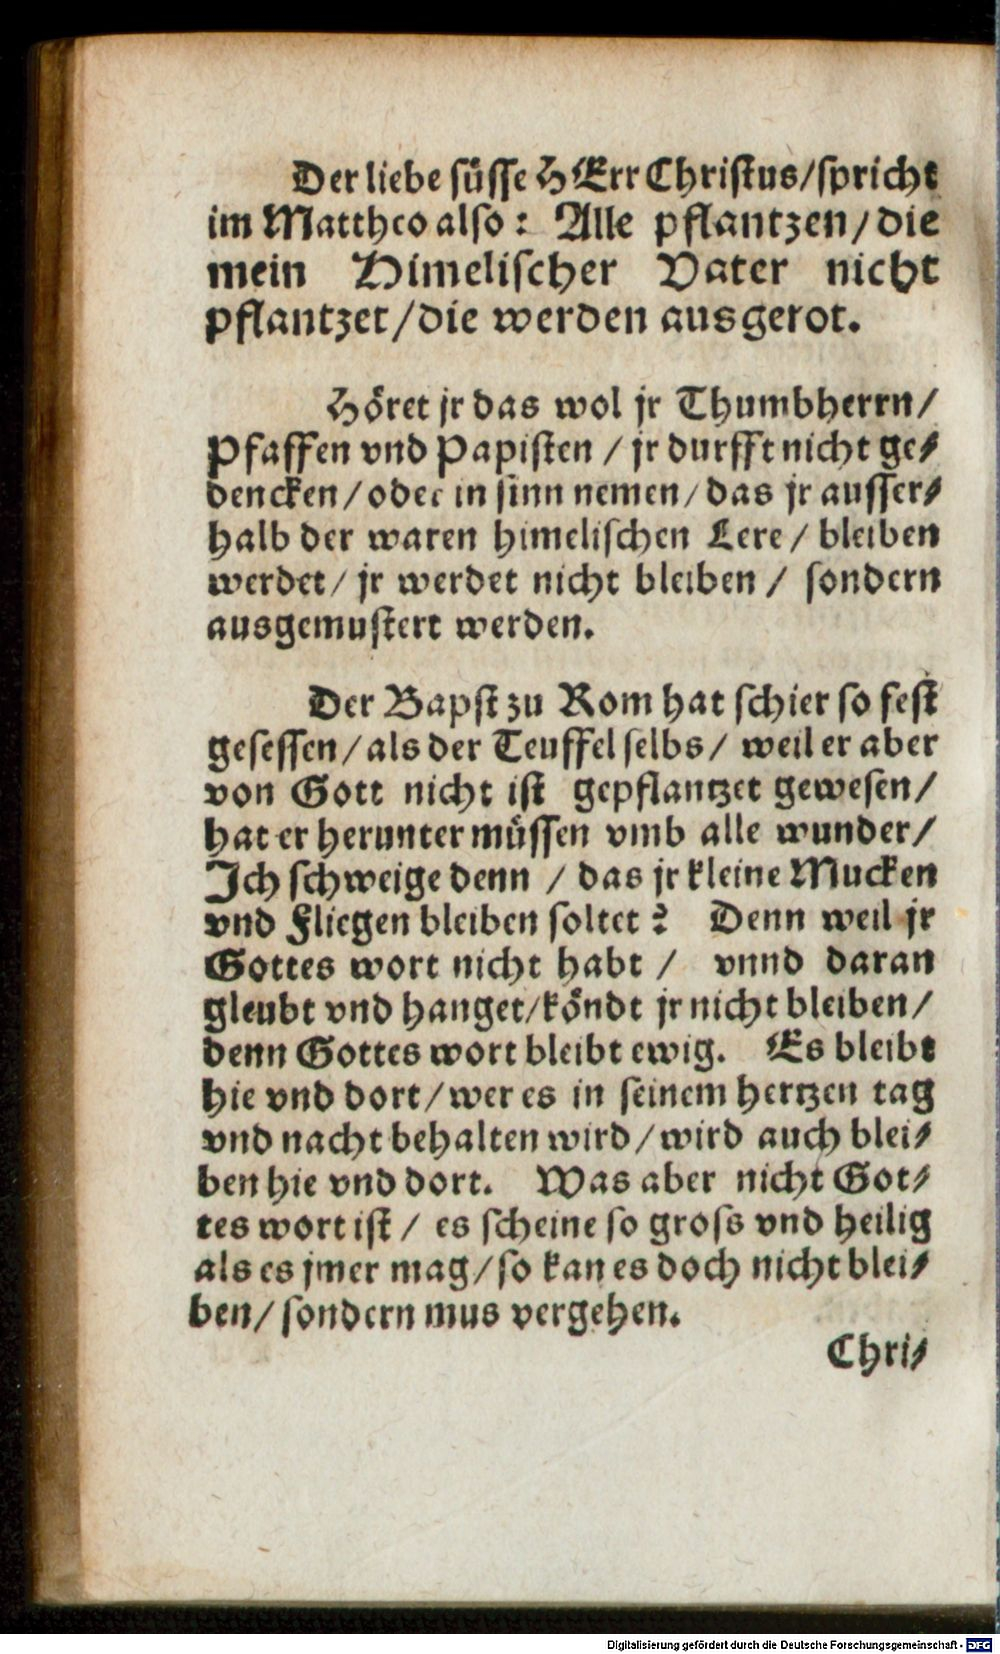 Der liebe süsse HErr Christus/spricht
im Mattheo also: Alle pflantzen/die
mein Himelischer Vater nicht
pflantzet/die werden ausgerot.
Höret jr das wol jr Thumbherrn/
Pfaffen vnd Papisten / jr durfft nicht ge-
dencken/oder in sinn nemen/das jr ausser-
halb der waren himelischen Lere/ bleiben
werdet/ jr werdet nicht bleiben / sondern
ausgemustert werden.
Der Bapst zu Rom hat schier so fest
gesessen/als der Teuffel selbs/ weil er aber
von Gott nicht ist gepflantzet gewesen/
hat er herunter müssen vmb alle wunder/
Ich schweige denn / das jr kleine Mucken
vnd Fliegen bleiben soltet? Denn weil jr
Gottes wort nicht habt / vnnd daran
gleubt vnd hanget/köndt jr nicht bleiben/
denn Gottes wort bleibt ewig. Es bleibt
hie vnd dort/wer es in seinem hertzen tag
vnd nacht behalten wird/wird auch blei-
ben hie vnd dort. Was aber nicht Got-
tes wort ist / es scheine so gross vnd heilig
als es jmer mag/so kan es doch nicht blei-
ben/sondern mus vergehen.
Chri-
Digitalisierung gefördert durch die Deutsche Forschungsgemeinschaft - DFG